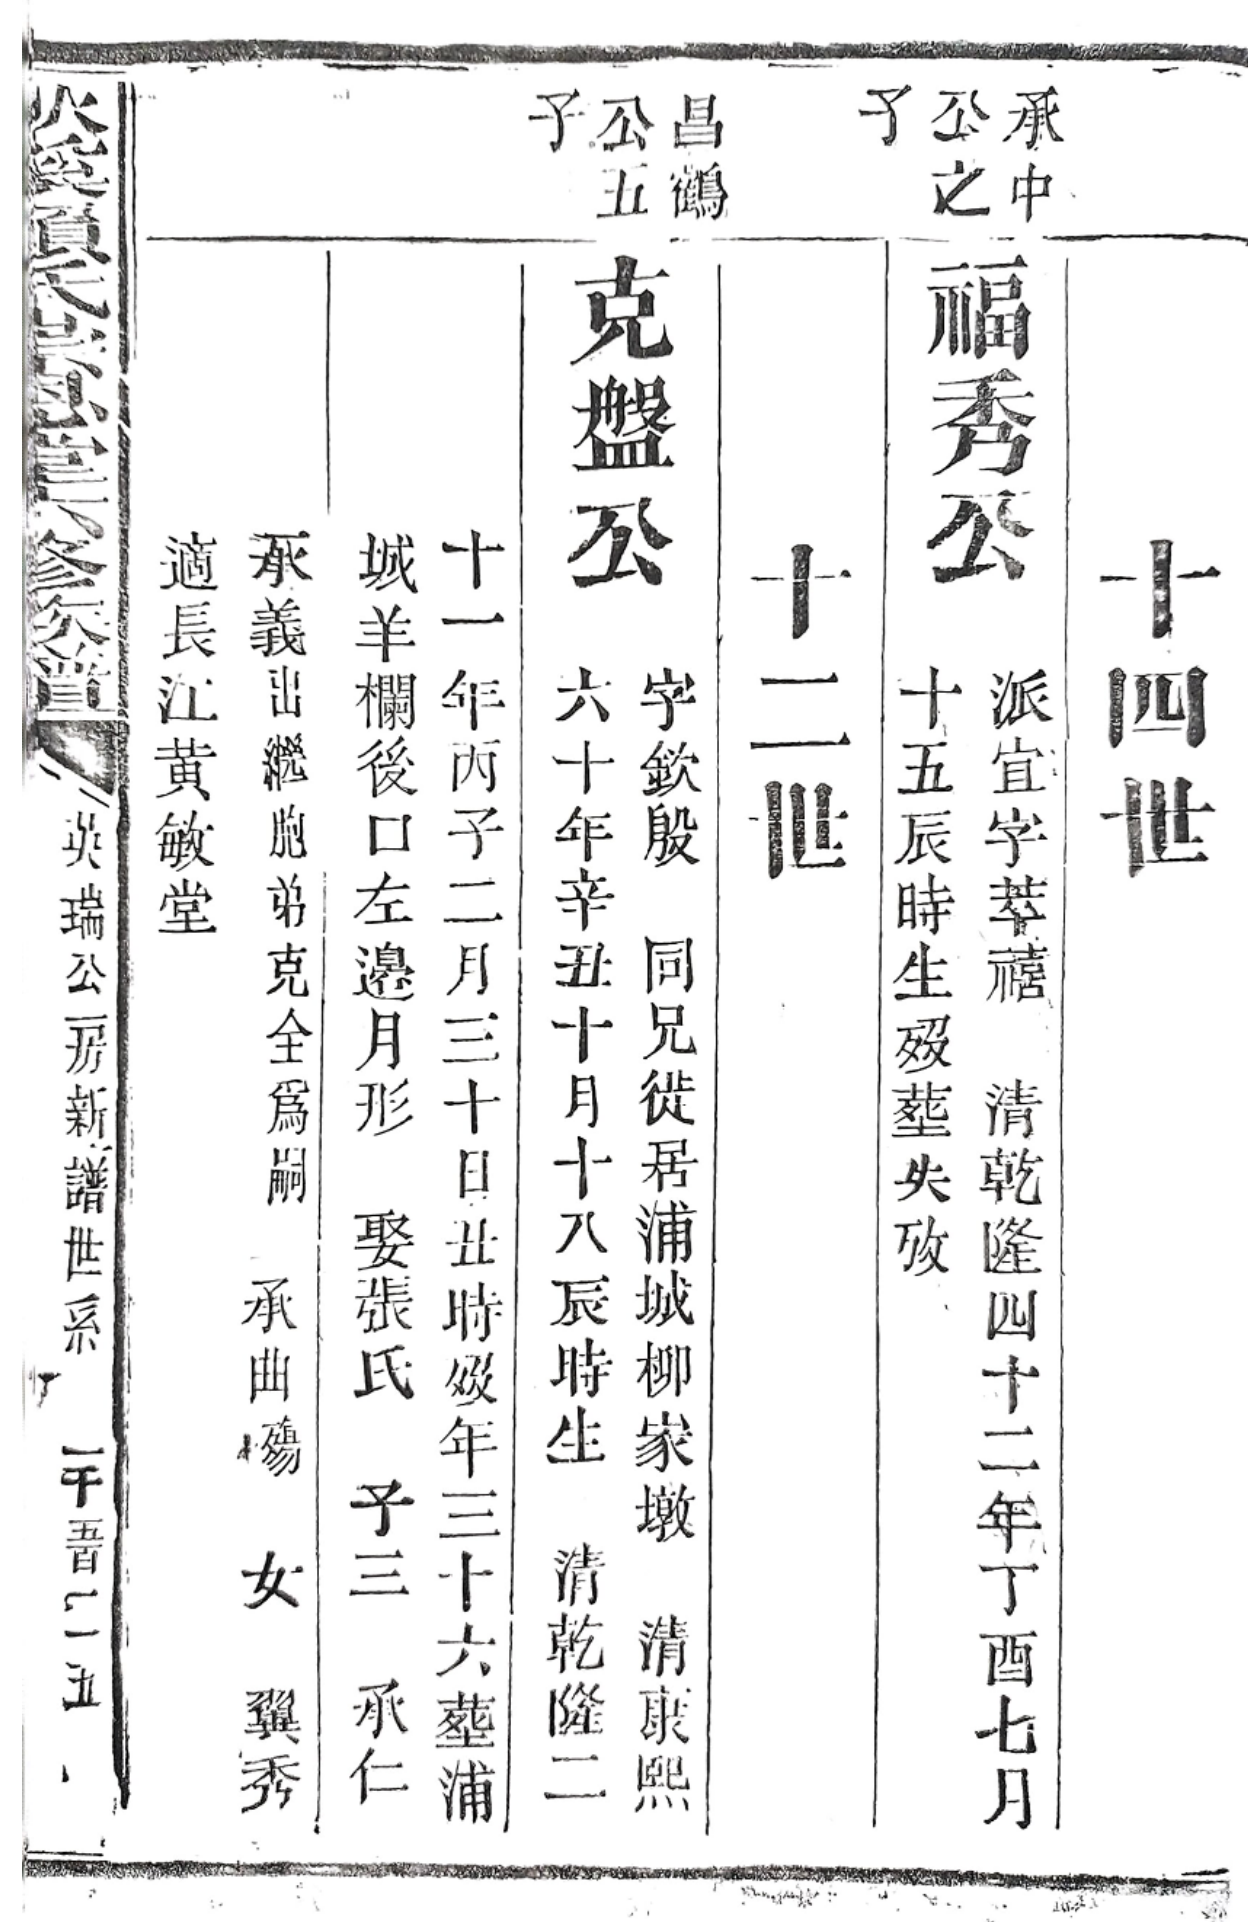 十四世
承中
公之
子
福秀公
派宜字萃禧　清乾隆四十二年丁酉七月
十五辰時生歿塟失攷
十二世
昌鶴
公五
子
克盤公
字欽殷　同兄徙居浦城柳家墩　清康熙
六十年辛丑十月十八辰時生　清乾隆二
十一年丙子二月三十日丑時歿年三十六塟浦
城羊欄後口左邉月形　娶張氏　子三　承仁
承義出繼胞弟克全爲嗣　承曲殤　女　翼秀
適長江黃敏堂
溪項氏 修族譜
英瑞公房新譜世系